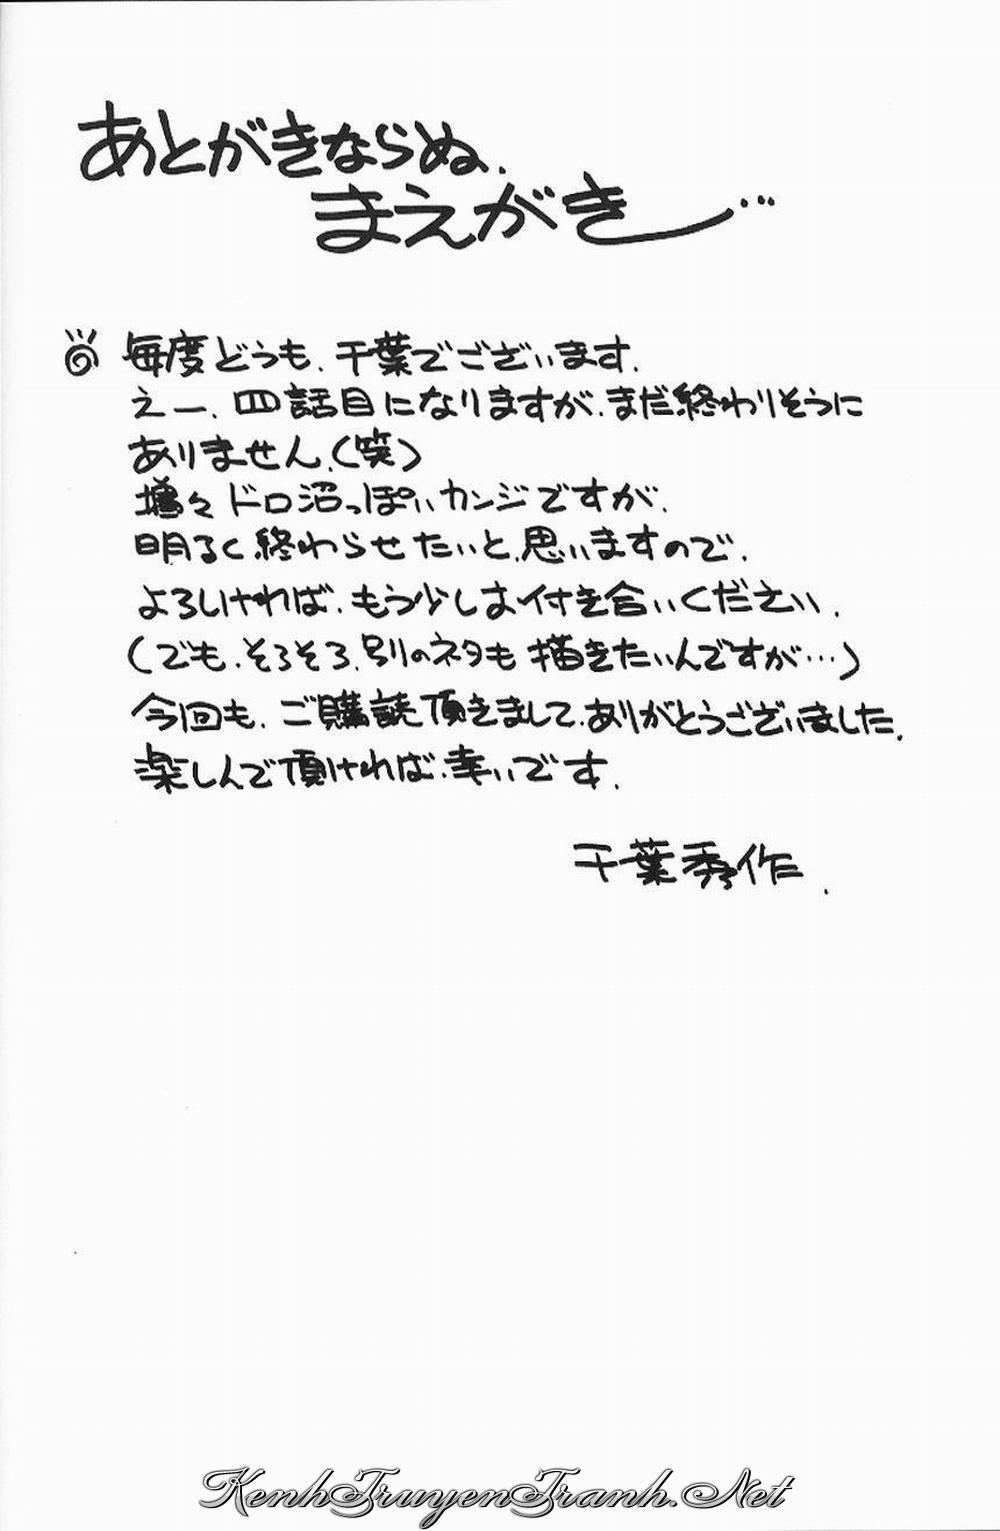 あとがきならぬ、
まえがき…
毎度どうも、千葉でございます。
えー、四話目になりますが、まだ終わりそうに
ありません。(笑)
増々ドロ沼っぽいカンジですが、
明るく終わらせたいと、思いますので、
よろしければ、もう少しお付き合いください。
(でも、そろそろ、別のネタも描きたいんですが…)
今回も、ご購読頂きまして、ありがとうございました。
楽しんで頂ければ、幸いです。
千葉秀作.
KenhTruyenTranh.Net